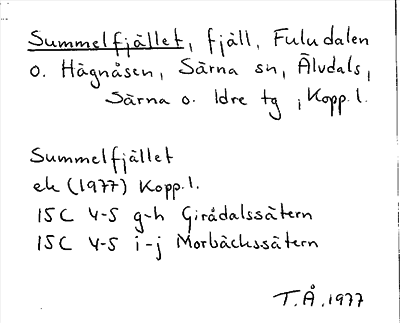 Summelfjället, fjäll, Fuludalen
o. Hägnåsen, Särna sn, Älvdals,
Särna o. Idre tg, Kopp. l.
Summelfjället
ek (1977) Kopp. l.
15C 4-5 g-h Girådalssätern
15C 4-5 i-j Morbäckssätern
T.Å. 1977